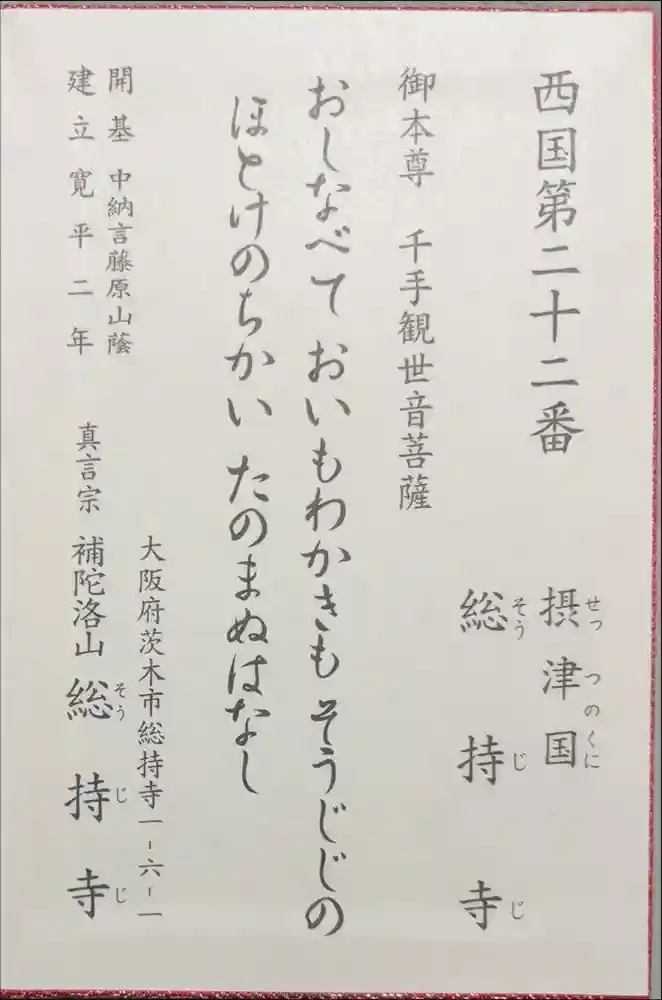 西国第二十二番
摂津国
せっつのくに
総持寺
そうじじ
御本尊 千手観世音菩薩
おしなべて おいもわかきも そうじじの
ほとけのちかい たのまぬはなし
開基 中納言藤原山蔭
建立寛平二年
大阪府茨木市総持寺一-六-一
真言宗 補陀洛山 総持寺
そうじじ